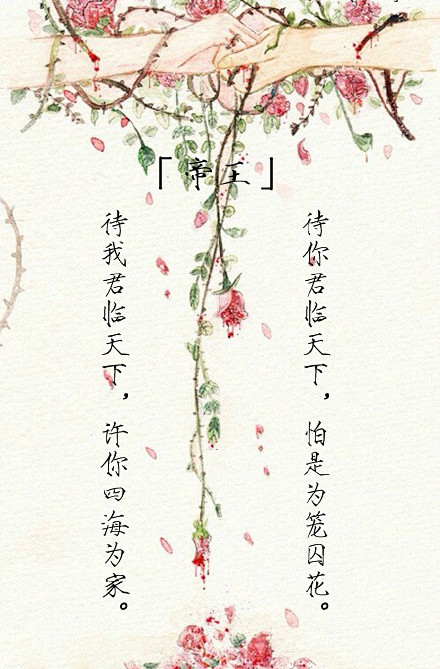 「帝王」
待我君临天下，许你四海为家。
待你君临天下，怕是为笼囚花。